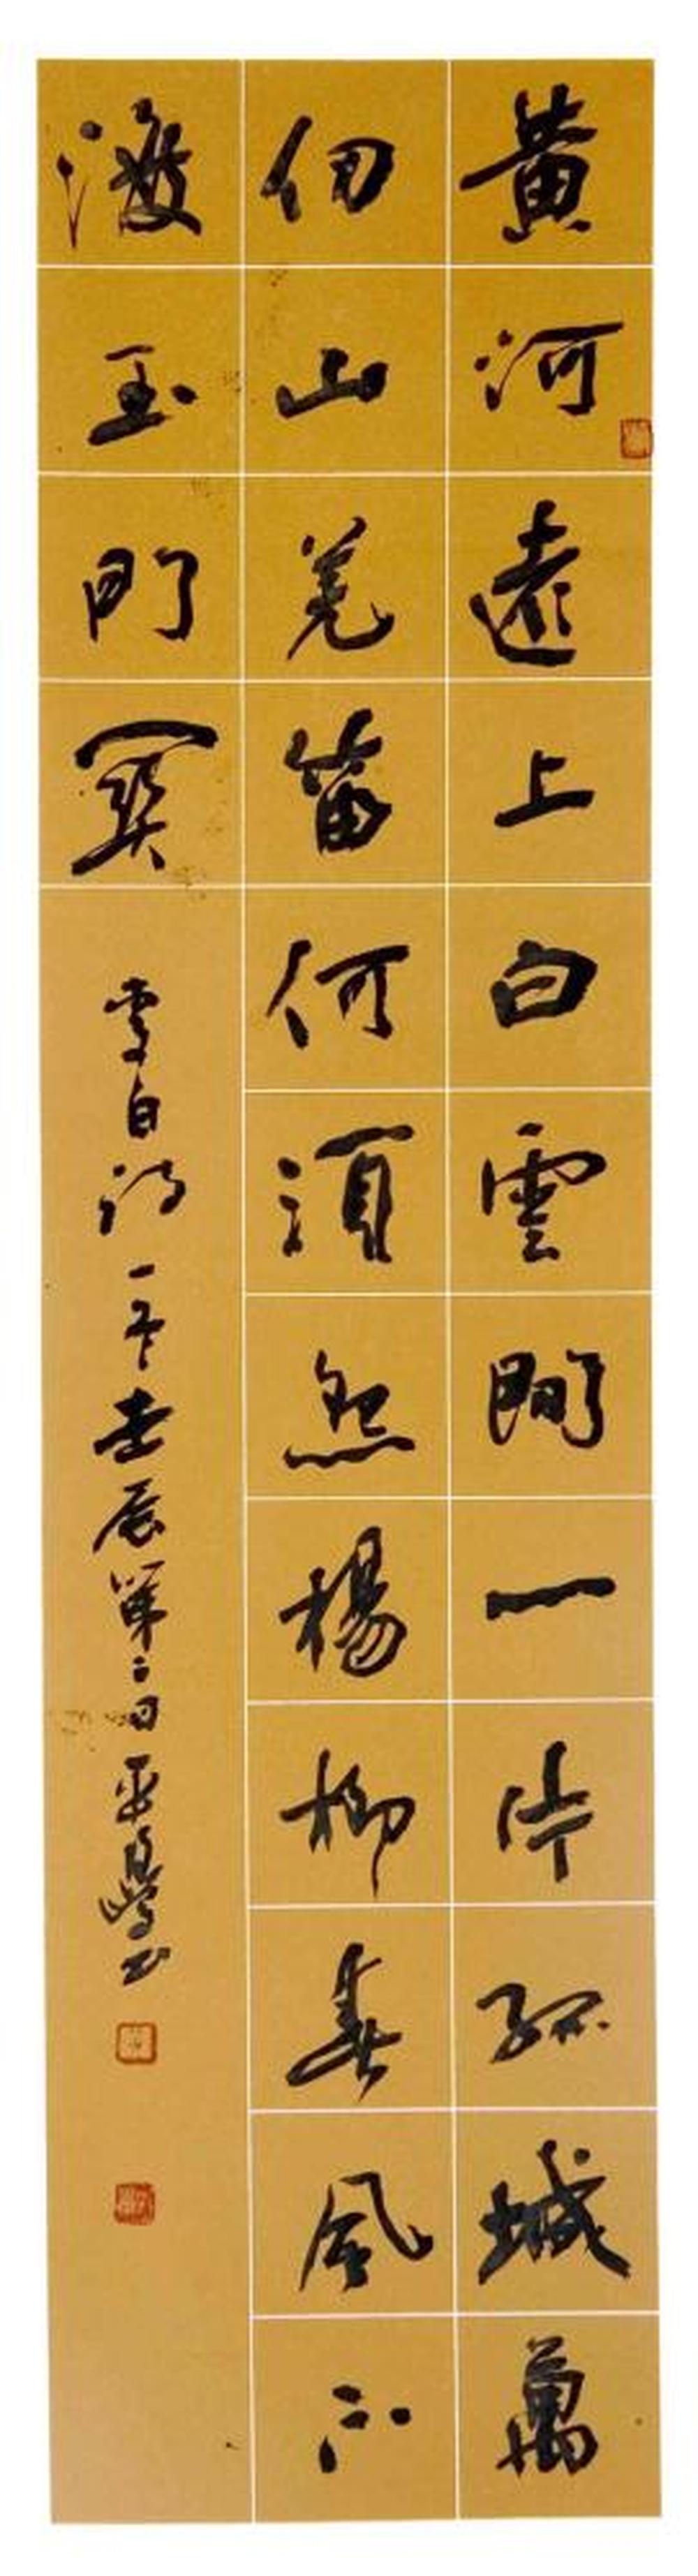 黄河遠上白雲間一片孤城萬
仞山羌笛何須怨楊柳春風不
渡玉門関
李白詩一首壬辰第二日平